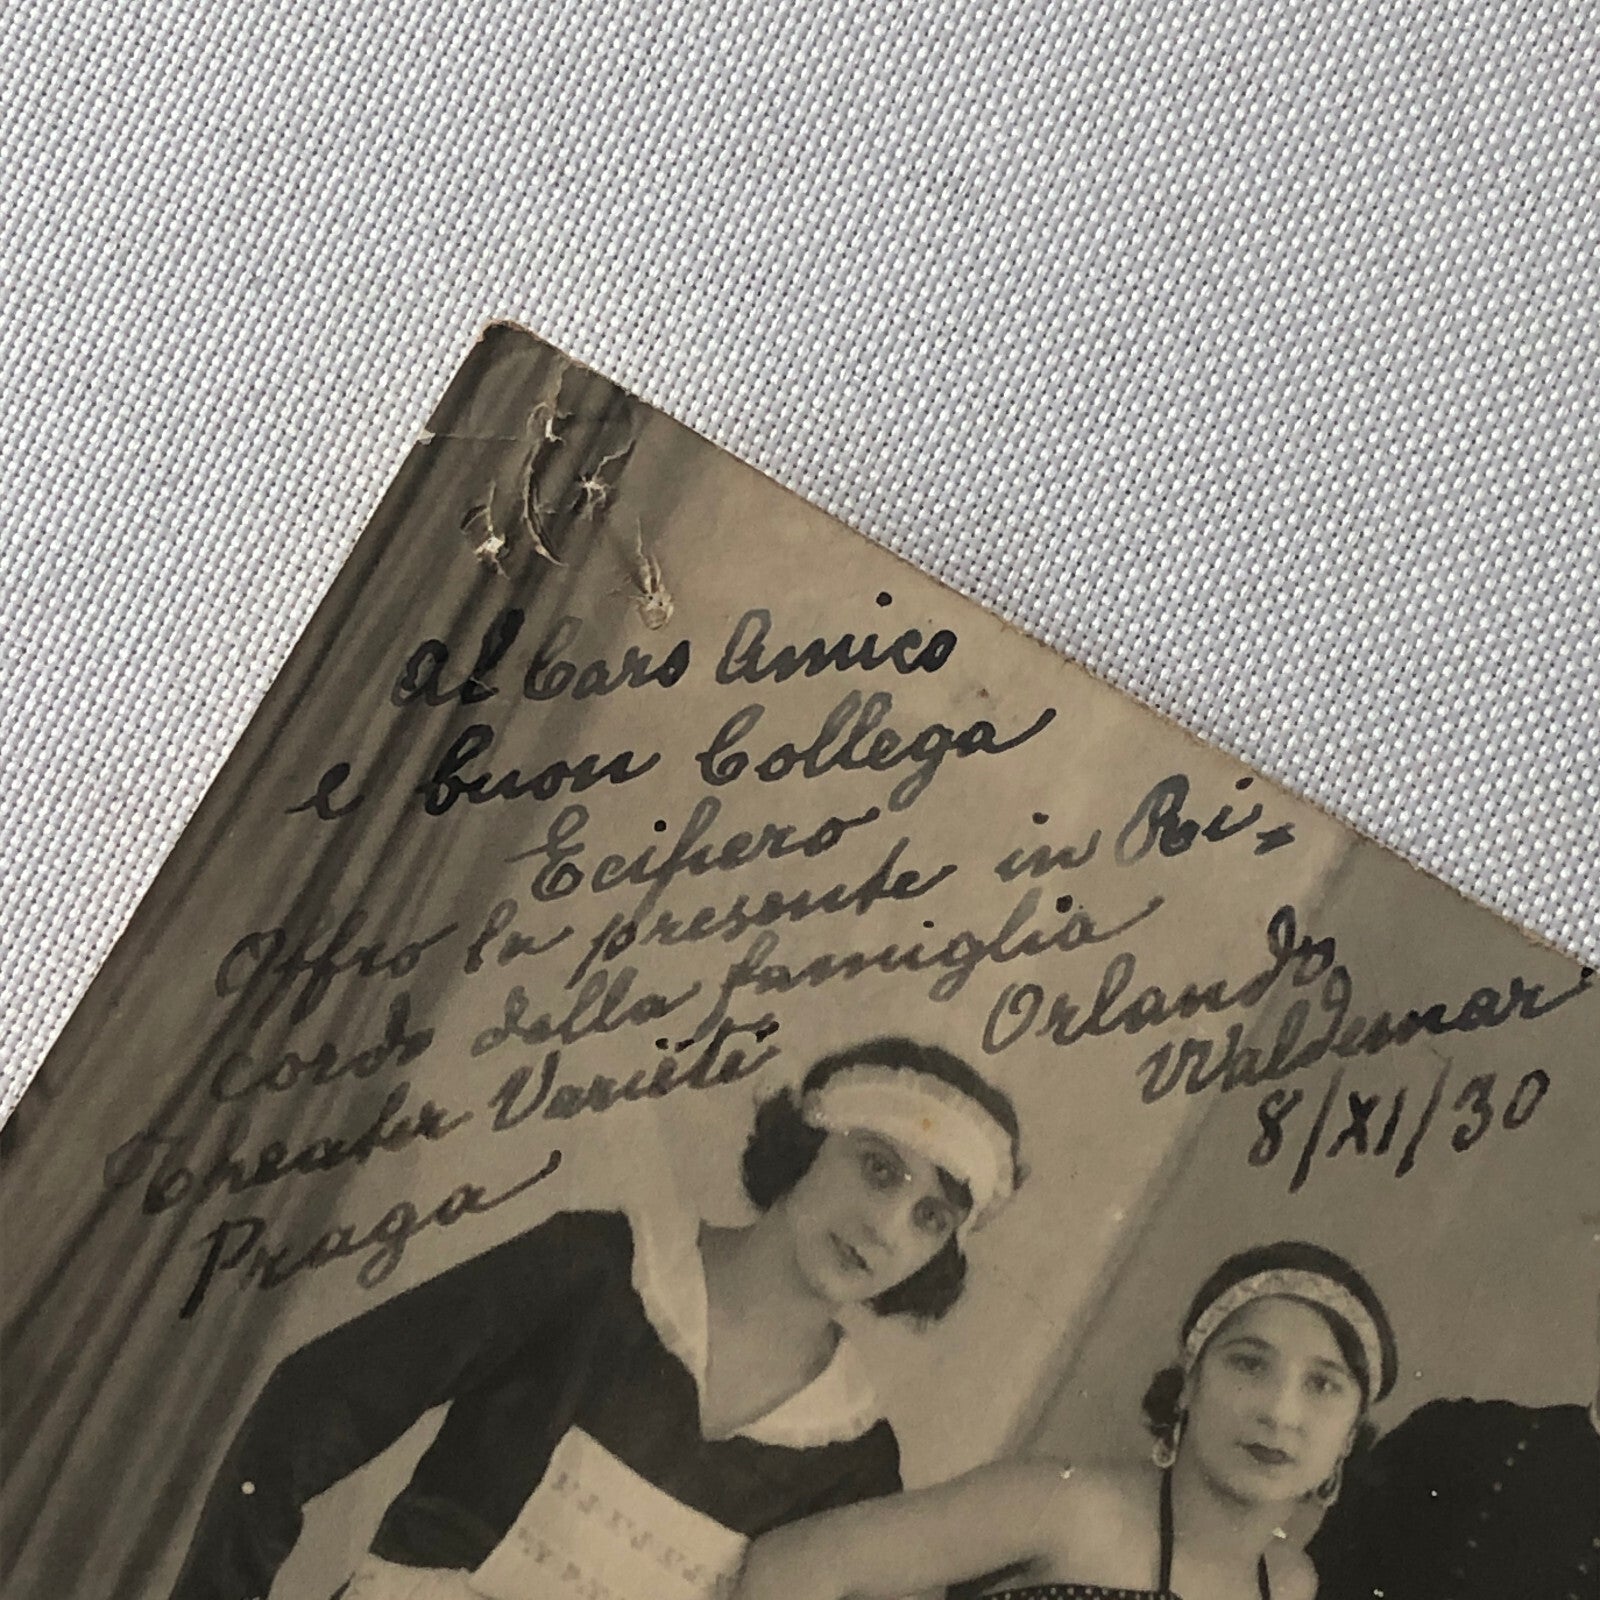 Al Caro Amico
e buon Collega
Ecifero
Offro la presente in Ri=
cordo della famiglia
Orlando
Waldemar
8/XI/30
Theater Varieté
Praga